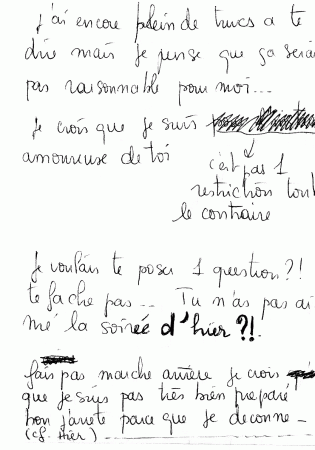 J'ai encore plein de trucs a te
dire mais je pense que ça serai
pas raisonnable pour moi...
Je crois que je suis
amoureuse de toi
c'est pas 1
restriction tout
le contraire
Je voulais te poser 1 question ?!
te fache pas... Tu n'as pas ai
mé la soirée d'hier ?!
fais pas marche arrière je crois
que je suis pas très bien préparé
bon j'arrete parce que je deconne -
(cf. Hier)